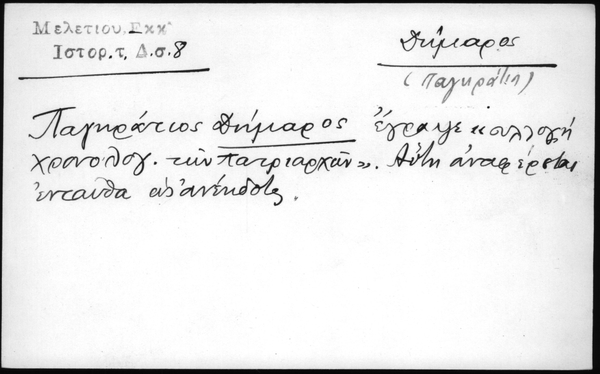 Μελετιου, Εκκ
Ιστορ. τ, Δ. σ. 8
Δήμαρος
(Παγκράτιος)
Παγκράτιος Δήμαρος ἔγραψε «συλλογή
χρονολογ. τῶν πατριαρχῶν». Αὕτη ἀναφέρεται
ἐνταῦθα ὡς ἀνέκδοτος.